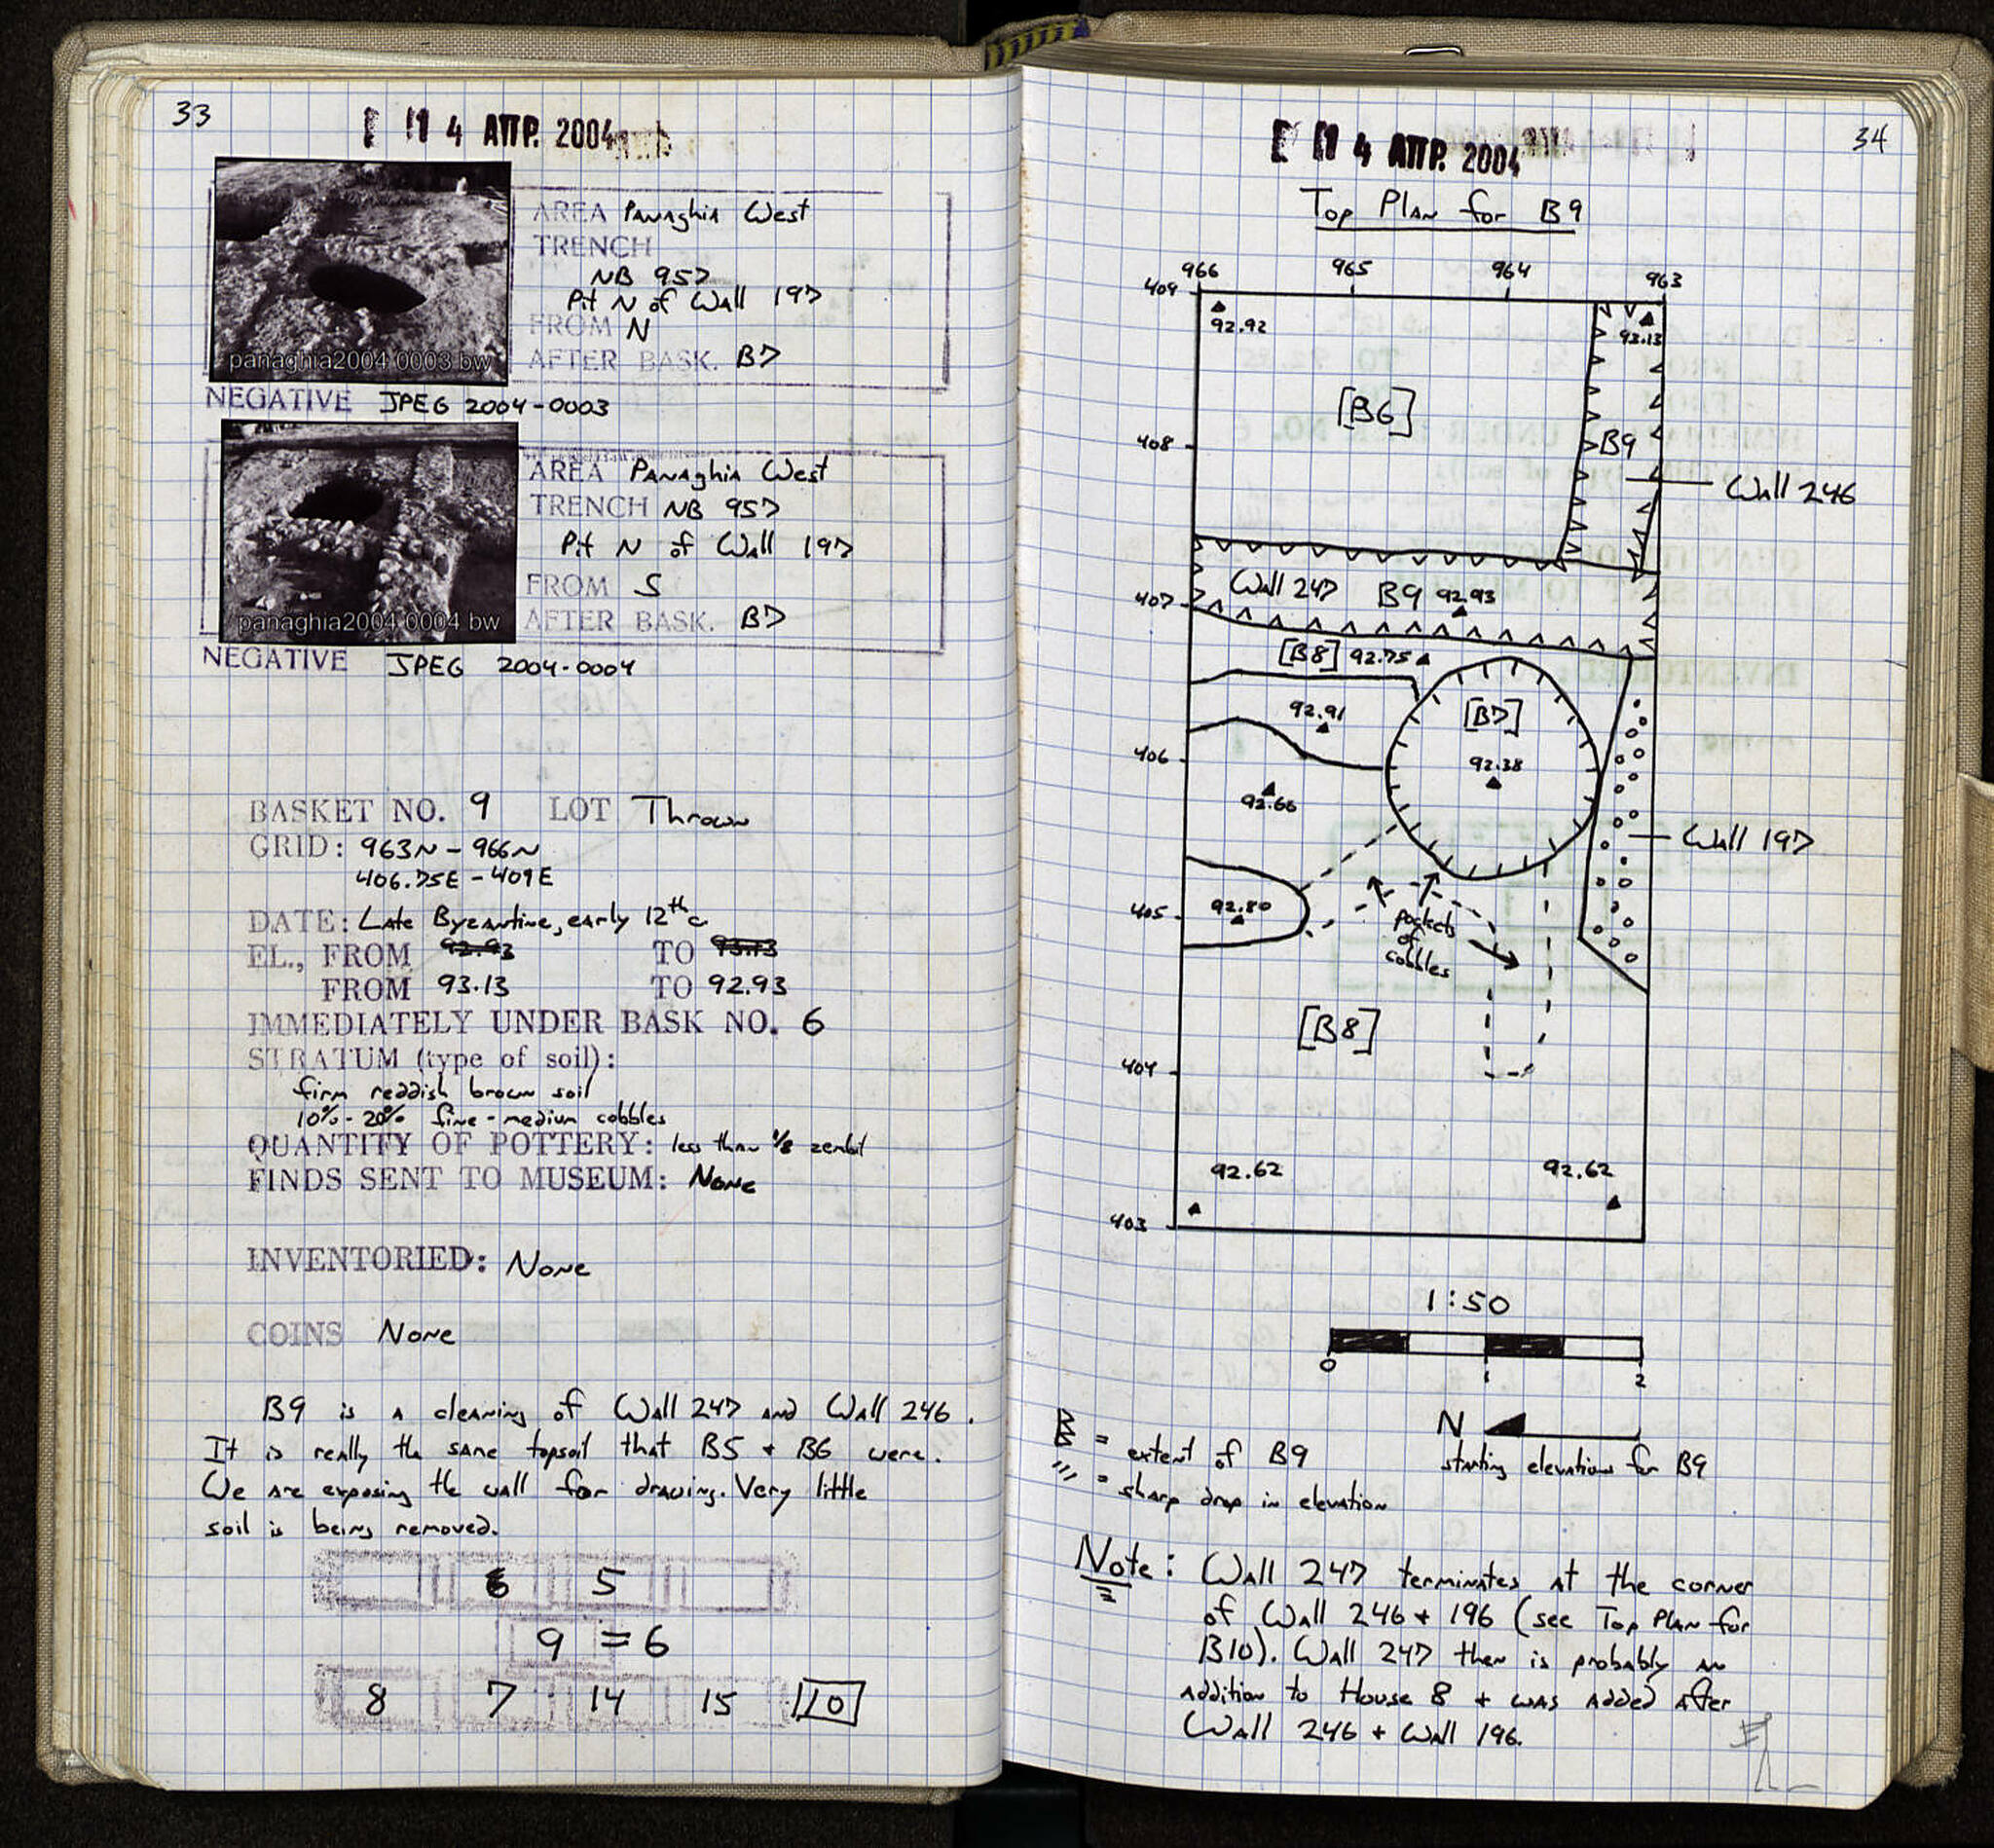 33
14 ΑΠΡ. 2004
AREA Panaghia West
TRENCH
NB 957
Pit N of Wall 197
FROM N
AFTER BASK. B7
panaghia2004 0003 bw
NEGATIVE JPEG 2004-0003
AREA Panaghia West
TRENCH NB 957
Pit N of Wall 197
FROM S
AFTER BASK. B7
panaghia2004 0004 bw
NEGATIVE JPEG 2004-0004
BASKET NO. 9 LOT Thrown
GRID: 963N - 966N
406.75E - 409E
DATE: Late Byzantine, early 12th c.
EL., FROM 92.93 TO 93.13
FROM 93.13 TO 92.93
IMMEDIATELY UNDER BASK NO. 6
STRATUM (type of soil):
firm reddish brown soil
10% - 20% fine - medium cobbles
QUANTITY OF POTTERY: less than 1/8 zembil
FINDS SENT TO MUSEUM: None
INVENTORIED: None
COINS None
B9 is a cleaning of Wall 247 and Wall 246.
It is really the same topsoil that B5 + B6 were.
We are exposing the wall for drawing. Very little
soil is being removed.
6 5
9 = 6
8 7 14 15 10
34
14 ΑΠΡ. 2004
Top Plan for B9
966 965 964 963
409
92.92
93.13
[B6]
408
B9
Wall 246
Wall 247 B9 92.93
407
[B8] 92.75
92.91
[B7]
406
92.38
92.66
Wall 197
405
92.80
pockets
of
cobbles
[B8]
404
92.62 92.62
403
1:50
0 1 2
N
= extent of B9
starting elevations for B9
''' = sharp drop in elevation
Note: Wall 247 terminates at the corner
of Wall 246 + 196 (see Top Plan for
B10). Wall 247 then is probably an
addition to House 8 + was added after
Wall 246 + Wall 196.